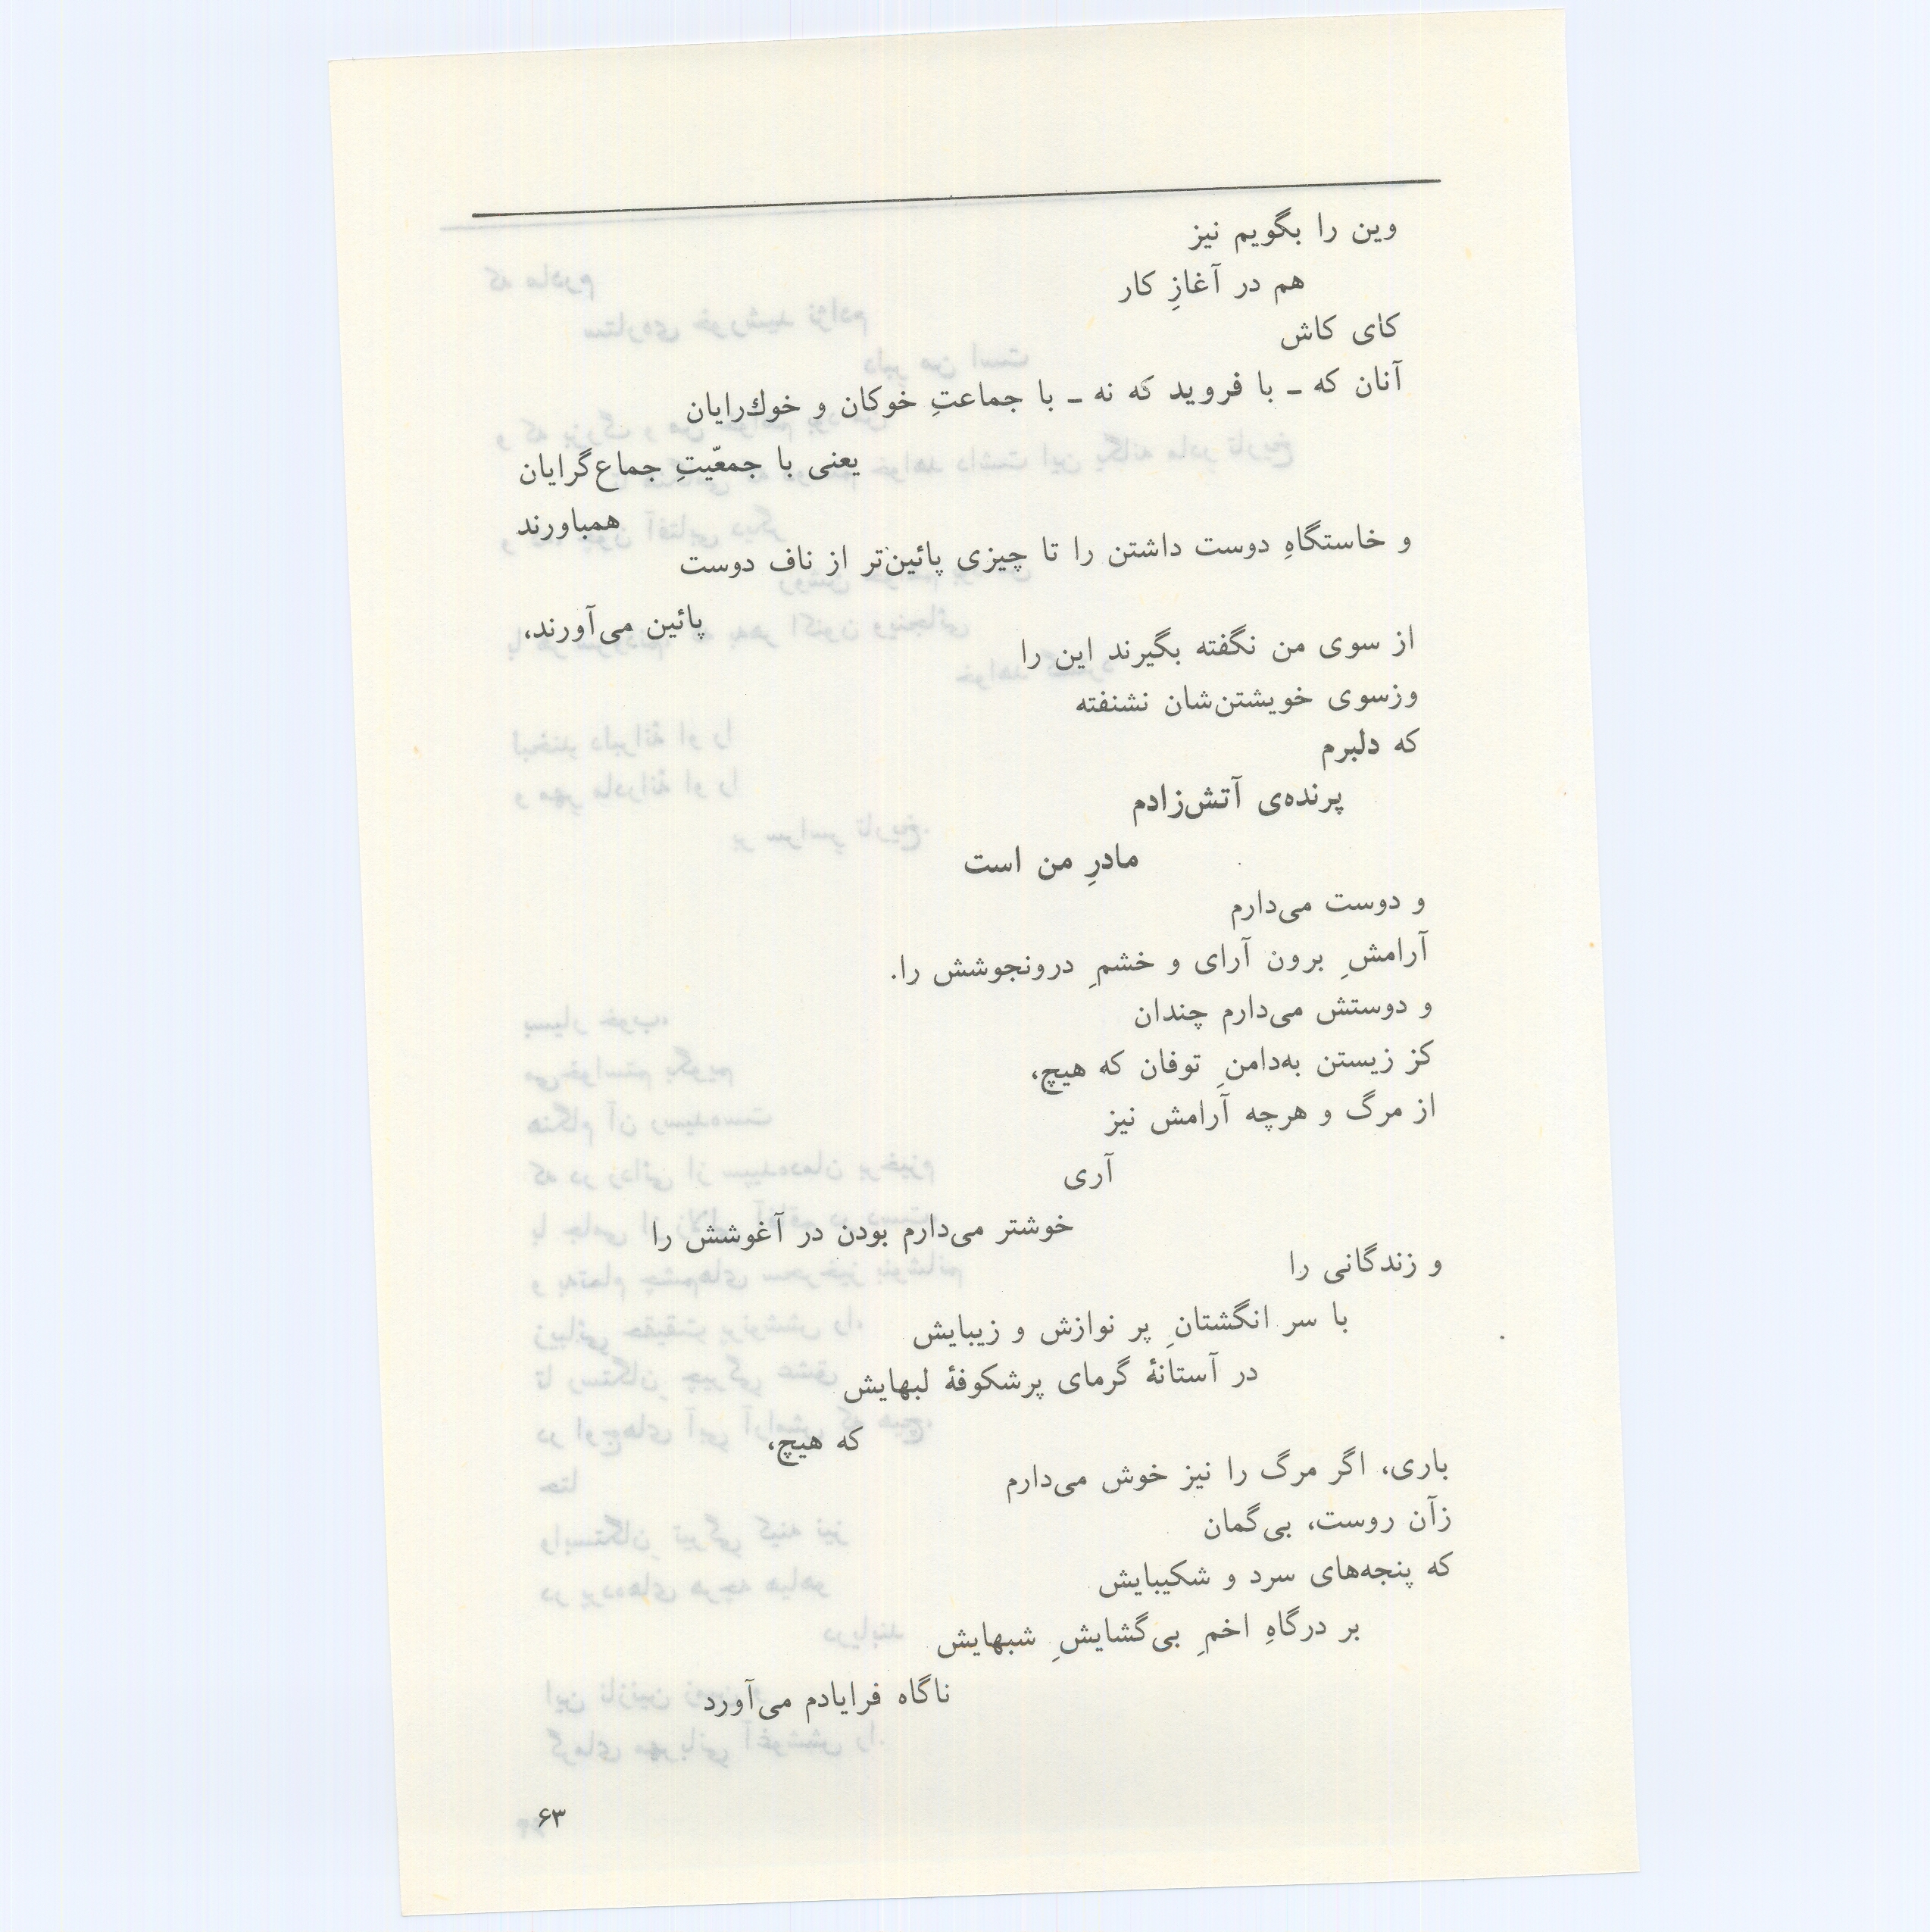 وین را بگویم نیز
هم در آغازِ کار
کای کاش
آنان که ـ با فروید که نه ـ با جماعتِ خوکان و خوك‌رایان
یعنی با جمعّیتِ جماع‌گرایان
همباورند
و خاستگاهِ دوست داشتن را تا چیزی پائین‌تر از ناف دوست
پائین می‌آورند،
از سوی من نگفته بگیرند این را
وزسوی خویشتن‌شان نشنفته
که دلبرم
پرنده‌ی آتش‌زادم
مادرِ من است
و دوست می‌دارم
آرامشِ برون آرای و خشمِ درونجوشش را.
و دوستش می‌دارم چندان
کز زیستن به‌دامنِ توفان که هیچ،
از مرگ و هرچه آرامش نیز
آری
خوشتر می‌دارم بودن در آغوشش را
و زندگانی را
با سر انگشتانِ پر نوازش و زیبایش
در آستانهٔ گرمای پرشکوفهٔ لبهایش
که هیچ،
باری، اگر مرگ را نیز خوش می‌دارم
زآن روست، بی‌گمان
که پنجه‌های سرد و شکیبایش
بر درگاهِ اخمِ بی‌گشایشِ شبهایش
ناگاه فرایادم می‌آورد
۶۳